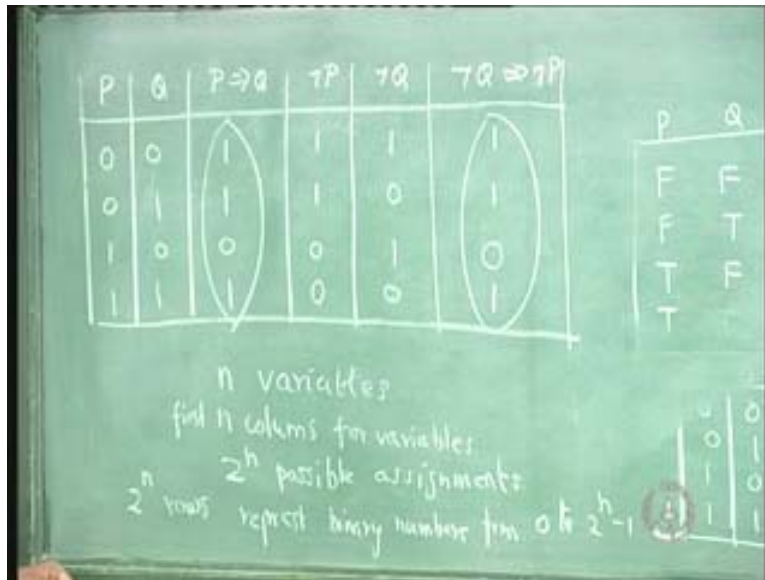 P Q P⇒Q ¬P ¬Q ¬Q⇒¬P
0 0 1 1 1 1
0 1 1 1 0 1
1 0 0 0 1 0
1 1 1 0 0 1
n variables
first n colums for variables
2ⁿ possible assignments
2ⁿ rows represt binary numbers from 0 to 2ⁿ-1
P Q
F F
F T
T F
T
0
0 1
1 0
1 1